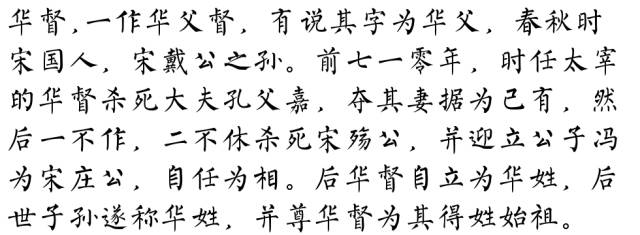 华督,一作华父督，有说其字为华父，春秋时
宋国人，宋戴公之孙。前七一零年，时任太宰
的华督杀死大夫孔父嘉，夺其妻据为己有，然
后一不作，二不休杀死宋殇公，并迎立公子冯
为宋庄公，自任为相。后华督自立为华姓，后
世子孙遂称华姓，并尊华督为其得姓始祖。